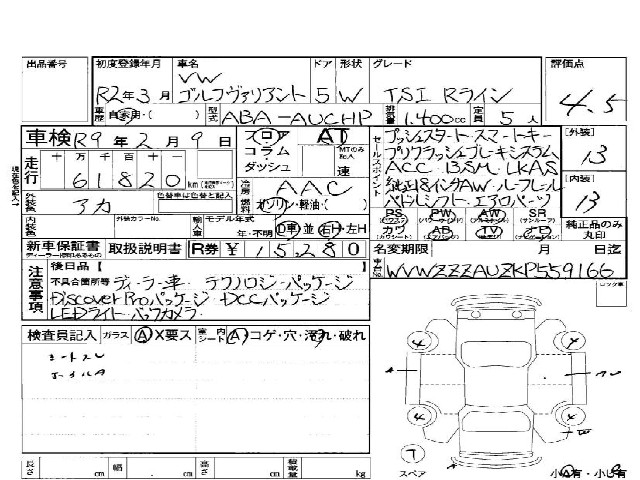 出品番号 初度登録年月 車名 ドア 形状 グレード 評価点
R2年3月 VW ゴルフヴァリアント 5 W TSI Rライン 4.5
車歴 自家用・( ) 型式 ABA-AUCHP 排気量 1.400cc 定員 5人
車検 R9年2月9日 フロア AT
コラム・ MTのみ記入
ダッシュ 速
走行 十 万 千 百 十 一
61820 km
外装色 アカ 色替車は色替と記入 冷房 AAC
燃料 ガソリン・軽油・( )
内装色 外装カラーNo. 輸入車 モデル年式 年・不明 D車・並 右H・左H
セールスポイント
プッシュスタート・スマートキー
プリクラッシュブレーキシステム
ACC・BSM・LKAS
純正18インチAW・ルーフレール
パドルシフト・エアロパーツ
PS PW AW SR
カワ AB TV ナビ 純正品のみ丸印
[外装] 13
[内装] 13
新車保証書 取扱説明書 R券 ¥15,280 名変期限 月 日迄
車台No. WVWZZZAUZKP559166
注意事項
後日品【
不具合箇所等 ディーラー車 テクノロジーパッケージ
Discover Proパッケージ・DCCパッケージ
LEDライト・バックカメラ
ロック車
検査員記入 ガラス A X要ス 室内シート A コゲ・穴・汚れ・破れ
シートスレ
ホイールA
4 4 4 4
A
T
スペア
小A有・小U有
長さ cm 幅 cm 高さ cm 積載量 kg